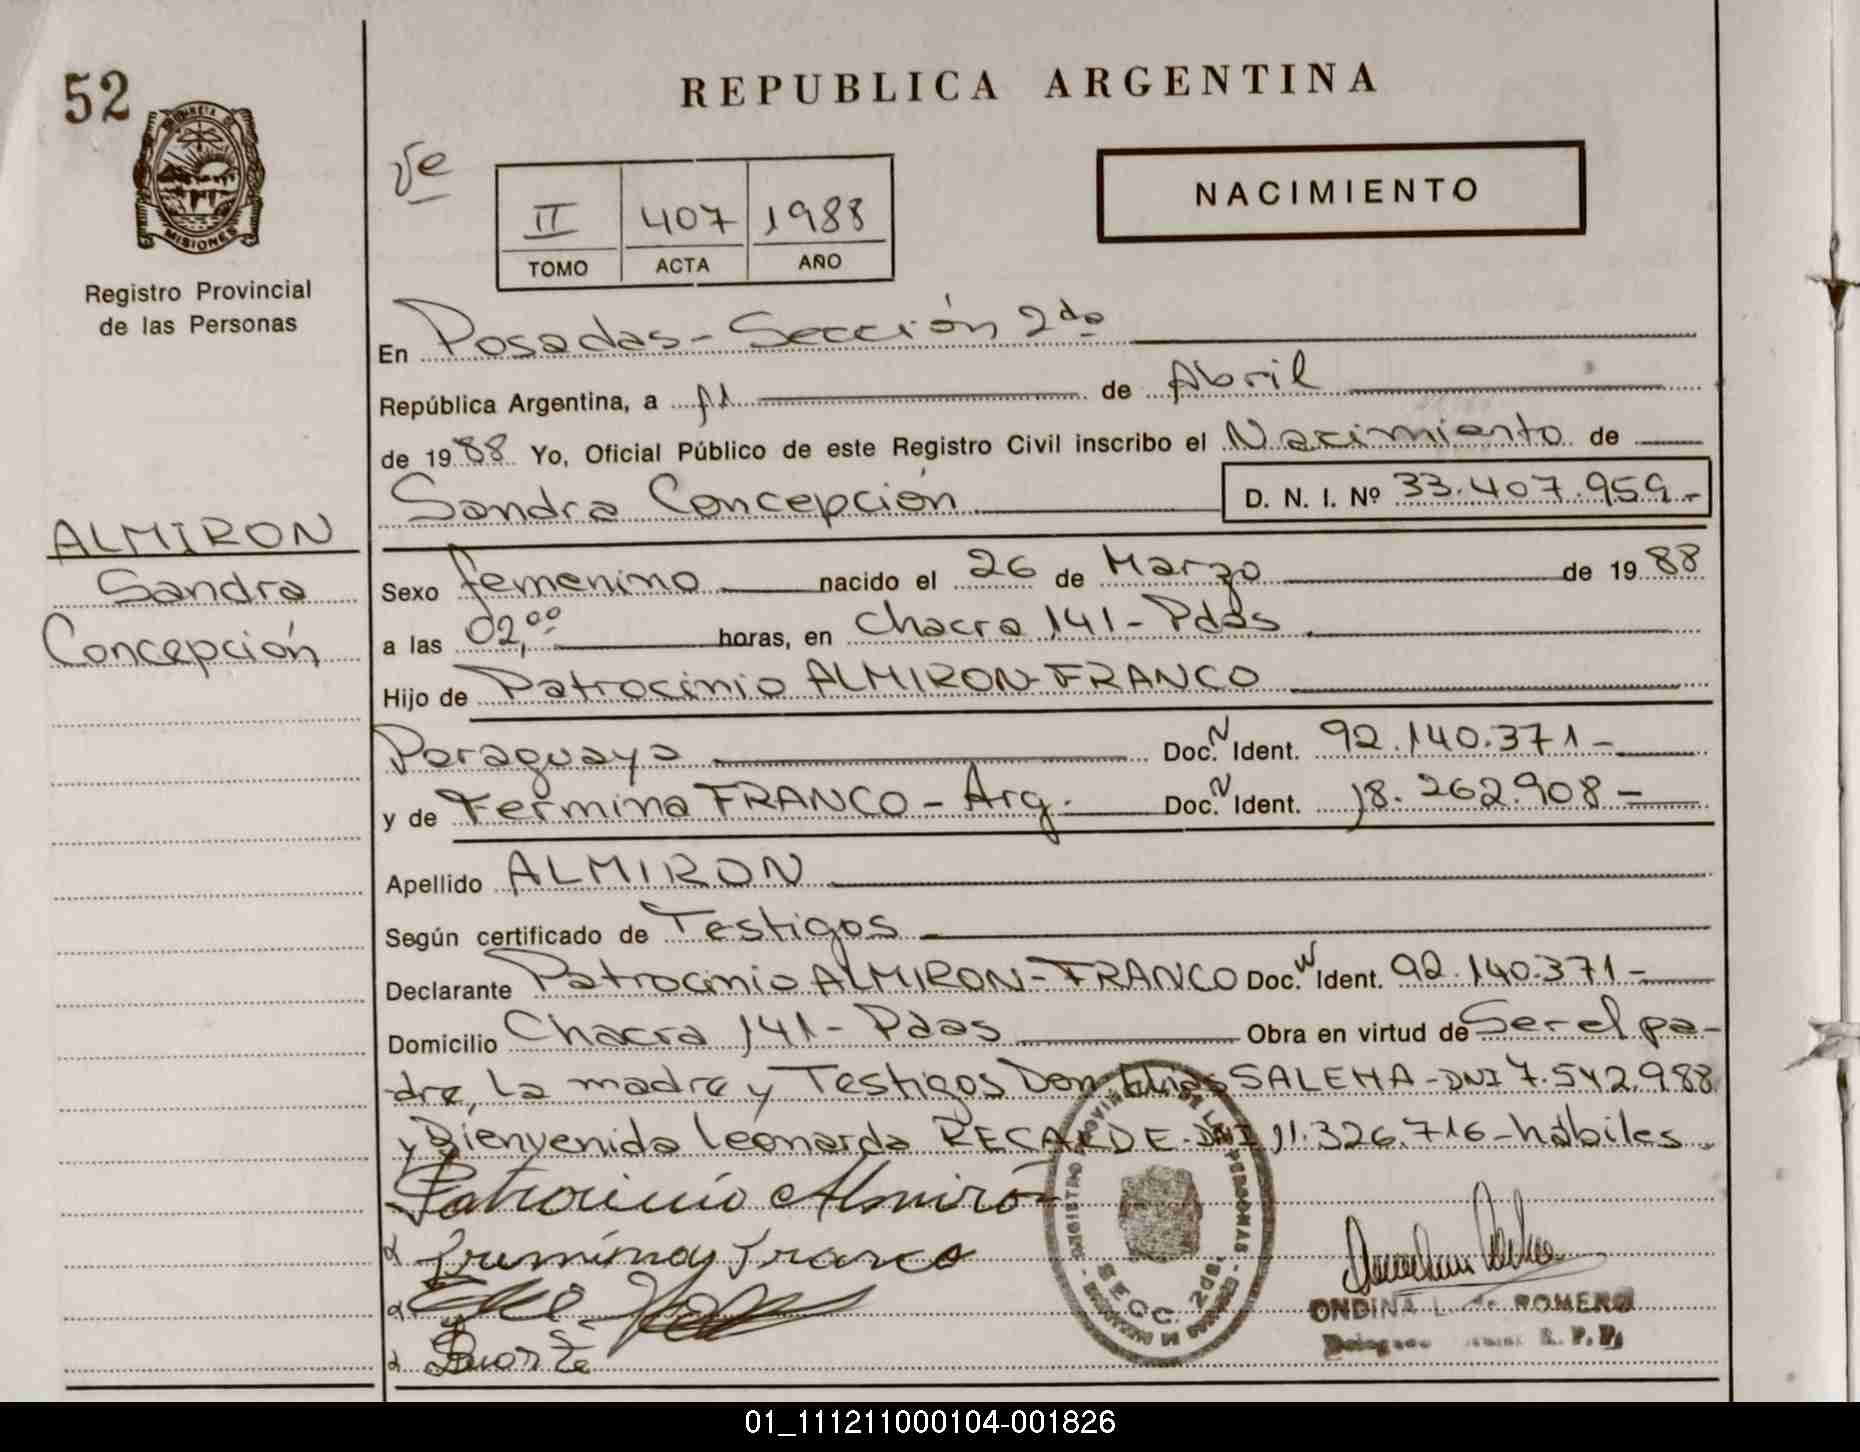 52
REPUBLICA ARGENTINA
PROVINCIA DE
MISIONES
Registro Provincial
de las Personas
II 407 1988
TOMO ACTA AÑO
NACIMIENTO
En Posadas - Sección 2da
República Argentina, a 11 de Abril
de 1988 Yo, Oficial Público de este Registro Civil inscribo el Nacimiento de
Sandra Concepción D. N. I. Nº 33.407.959.-
ALMIRON
Sandra
Concepción
Sexo femenino nacido el 26 de Marzo de 1988
a las 02,00 horas, en Chacra 141 - Pdas
Hijo de Patrocinio ALMIRON-FRANCO
Paraguaya Doc. N Ident. 92.140.371-
y de Fermina FRANCO - Arg. Doc. N Ident. 18.262.908-
Apellido ALMIRON
Según certificado de Testigos
Declarante Patrocinio ALMIRON-FRANCO Doc. N Ident. 92.140.371-
Domicilio Chacra 141 - Pdas Obra en virtud de Ser el pa-
dre, La madre y Testigos Don Elias SALEMA - DNI 7.542.988
y Bienvenida Leonarda RECARDE - DNI 11.326.716 - hábiles.
Patrocinio Almiron
Fermina Franco
REGISTRO PROVINCIAL DE LAS PERSONAS
SECC. 2da.
ONDINA L. de ROMERO
R. P. P.
01_111211000104-001826